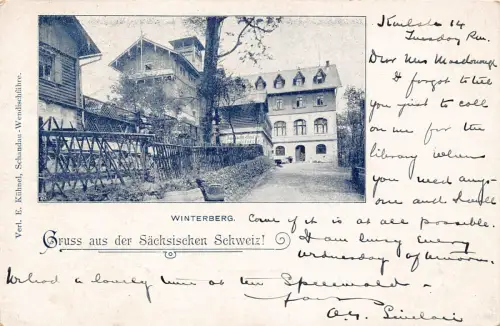 Karlstr 14
Tuesday Pm.
Dear Mrs Macdonough
I forgot to tell
you just to call
on me for the
library when
you need any-
one and I will
Come if it is at all possible.
I am busy every
Wednesday afternoon.
We had a lovely time at the Spreewald -
Yours
Sinclair
WINTERBERG.
Gruss aus der Sächsischen Schweiz!
Verl. E. Kühnel, Schandau-Wendischfähre.